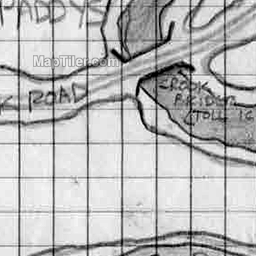 PADDYS
MapTiler.com
K ROAD
CROOK
BRIDGE
(TOLL 1C